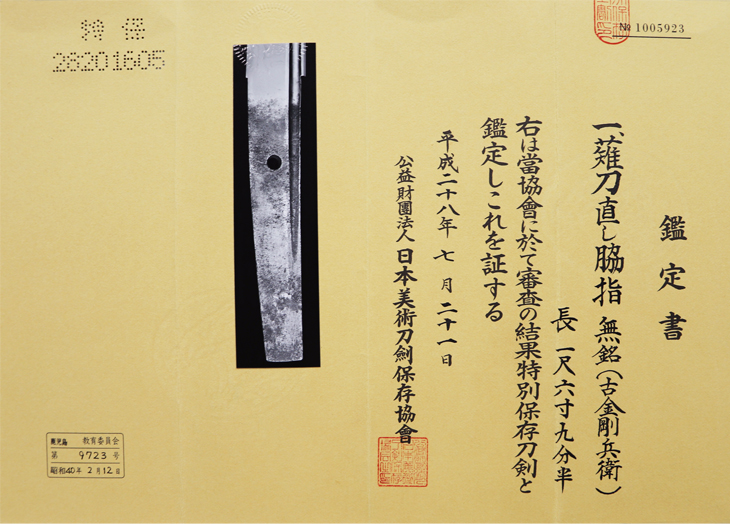 № 1005923
鑑定書
一、薙刀直し脇指 無銘(古金剛兵衛)
長 一尺六寸九分半
右は當協會に於て審査の結果特別保存刀剣と
鑑定しこれを証する
平成二十八年 七月 二十一日
公益財團法人 日本美術刀劍保存協會
特保
28201605
鹿児島 教育委員会
第 9723 号
昭和40年 2月12日